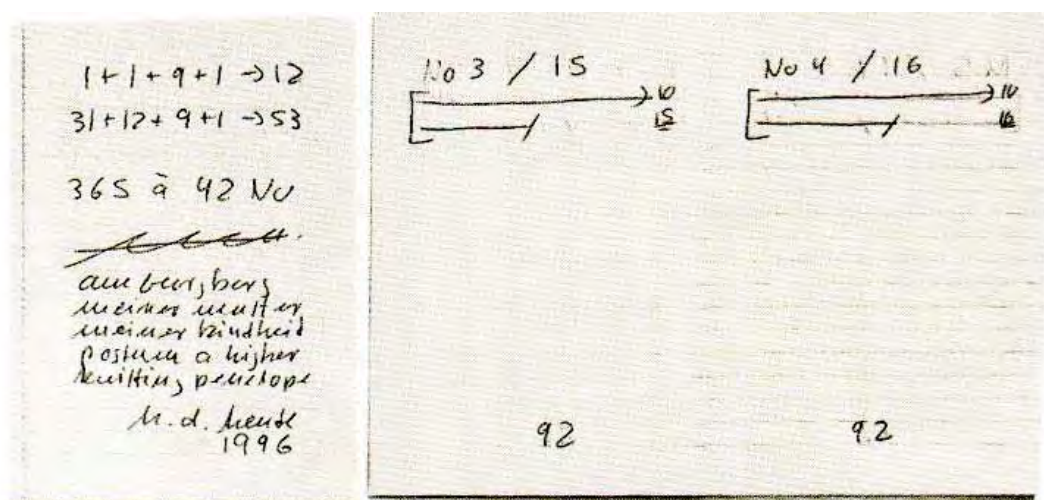 1+1+9+1→12
31+12+9+1→53
365 à 42 No
am burgberg
meiner mutter
meiner kindheid
postum a higher
knitting penelope
h.d.
1996
No 3 / 15
10
15
92
No 4 / 16
10
16
9.2